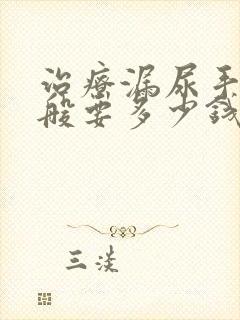 治疗漏尿手
般要多少钱
三淡